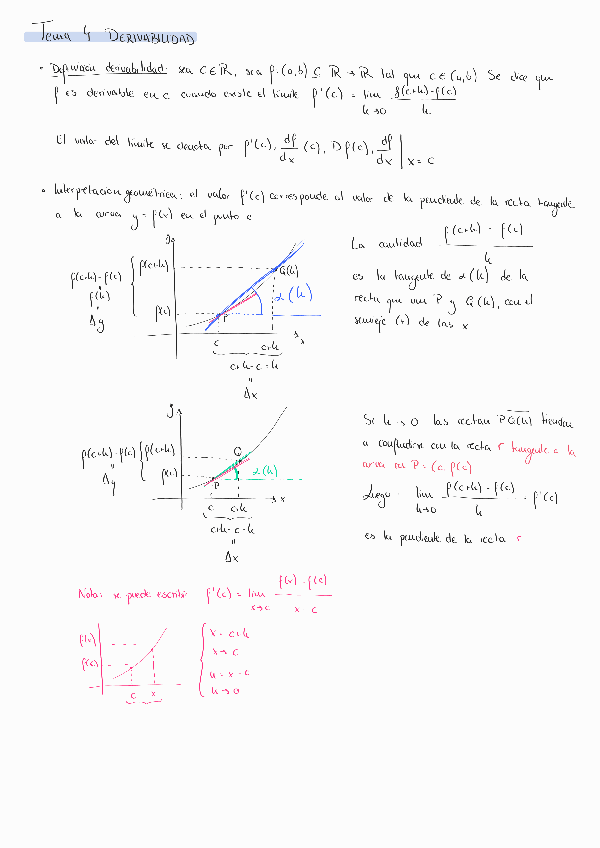 Tema 4 DERIVABILIDAD
• Definición derivabilidad: sea c ∈ ℝ, sea f: (a,b) ⊆ ℝ → ℝ tal que c ∈ (a,b) Se dice que
f es derivable en c cuando existe el límite f'(c) = lim h→0 f(c+h)-f(c) / h
El valor del límite se denota por f'(c), df/dx (c), D f(c), df/dx | x = c
• Interpretación geométrica: el valor f'(c) corresponde al valor de la pendiente de la recta tangente
a la curva y = f(x) en el punto c
La cantidad f(c+h) - f(c) / h
es la tangente de α(h) de la
recta que une P y Q(h), con el
(+) de las x
y
f(c+h)
f(c+h)-f(c)
f(h)
Δy
f(c)
Q(h)
α(h)
P
c
c+h
x
c+h-c = h
Δx
Si h → 0 las rectas PQ(h) tienden
a confundirse con la recta r tangente a la
curva en P = (c, f(c))
Luego lim h→0 f(c+h) - f(c) / h = f'(c)
es la pendiente de la recta r
y
f(c+h)-f(c)
f(c+h)
Δy
f(c)
Q
α(h)
P
c
c+h
x
c+h-c = h
Δx
Nota: se puede escribir f'(c) = lim x→c f(x) - f(c) / x - c
f(x)
f(c)
c x
x = c+h
x → c
h = x - c
h → 0